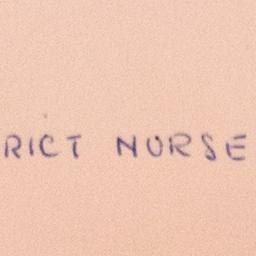 RICT NURSE